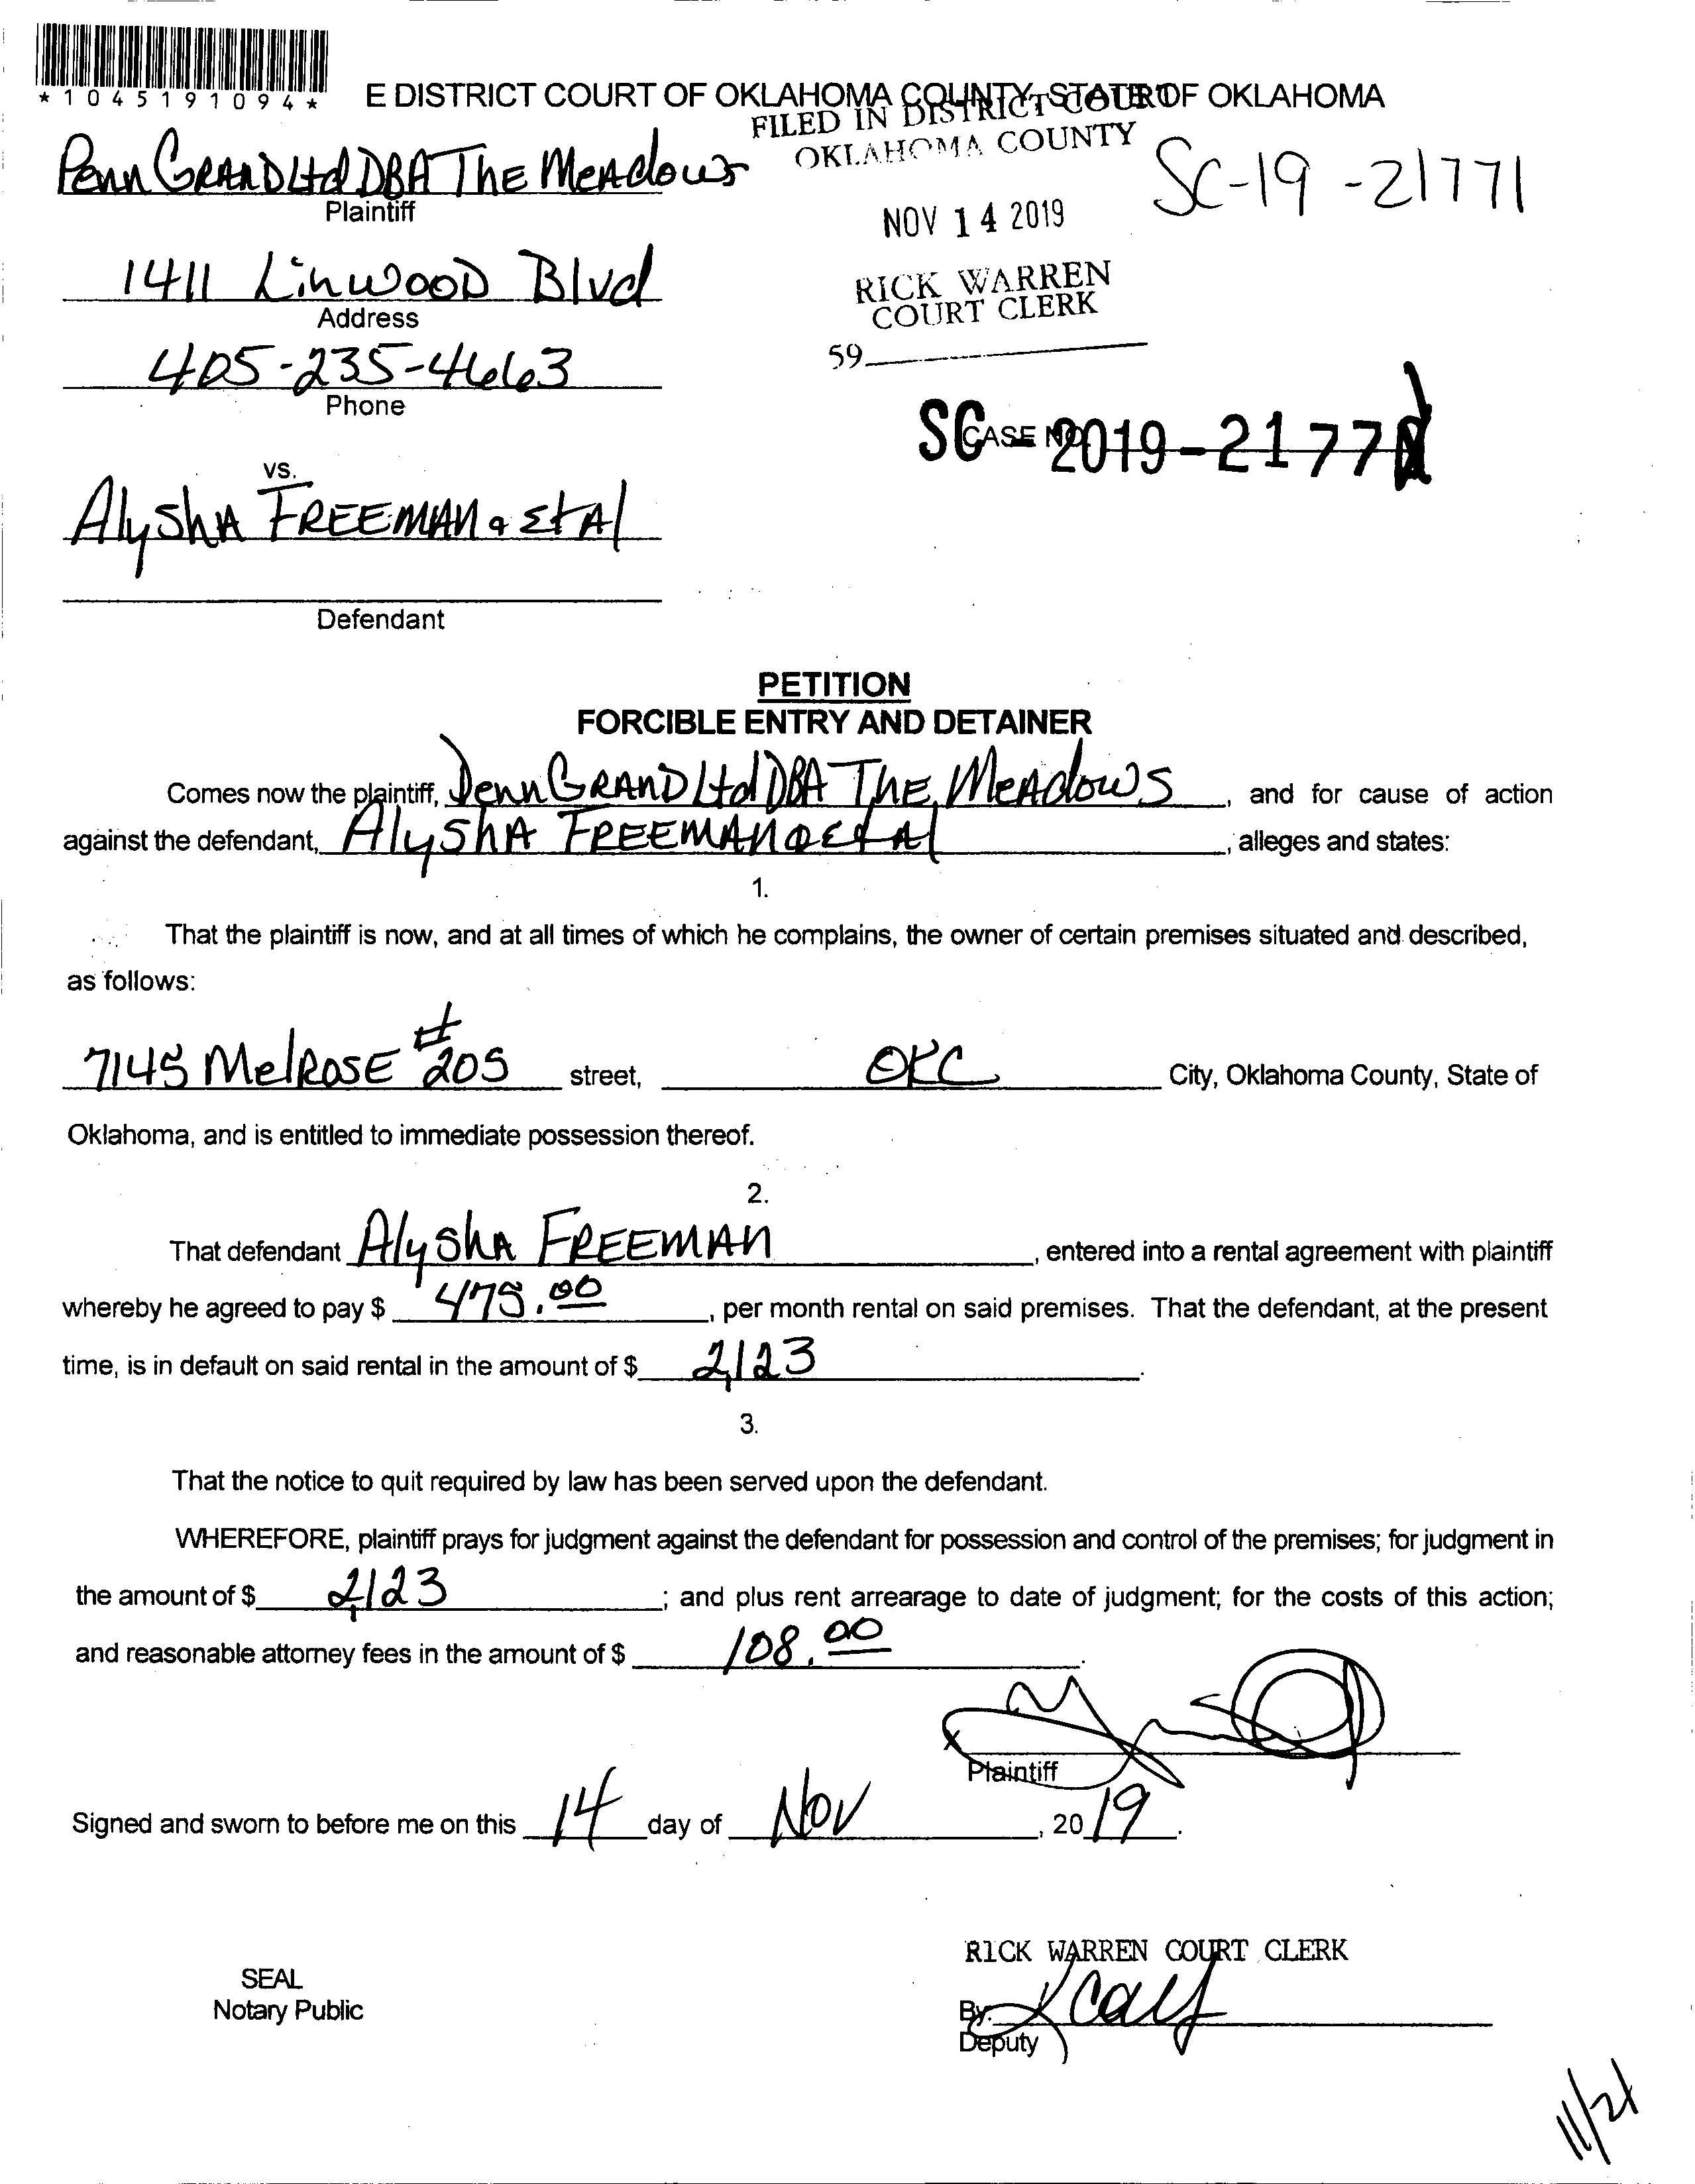 *1045191094*
E DISTRICT COURT OF OKLAHOMA COUNTY, STATE OF OKLAHOMA
FILED IN DISTRICT COURT
OKLAHOMA COUNTY
Penn GRAND Ltd DBA The MeAdows
Plaintiff
SC-19-21771
NOV 14 2019
1411 LinwooD Blvd
Address
RICK WARREN
COURT CLERK
405-235-4663
Phone
59
SC-2019-2177
CASE NO.
vs.
AlyshA FREEMAN & Et Al
Defendant
PETITION
FORCIBLE ENTRY AND DETAINER
Comes now the plaintiff, Penn GRAND Ltd DBA The MeAdows, and for cause of action
against the defendant, AlyshA FREEMAN & Et Al, alleges and states:
1.
That the plaintiff is now, and at all times of which he complains, the owner of certain premises situated and described,
as follows:
7145 MelRosE #205 street, OKC City, Oklahoma County, State of
Oklahoma, and is entitled to immediate possession thereof.
2.
That defendant AlyshA FREEMAN, entered into a rental agreement with plaintiff
whereby he agreed to pay $ 475.00, per month rental on said premises. That the defendant, at the present
time, is in default on said rental in the amount of $ 2,123.
3.
That the notice to quit required by law has been served upon the defendant.
WHEREFORE, plaintiff prays for judgment against the defendant for possession and control of the premises; for judgment in
the amount of $ 2,123; and plus rent arrearage to date of judgment; for the costs of this action;
and reasonable attorney fees in the amount of $ 108.00.
x
Plaintiff
Signed and sworn to before me on this 14 day of Nov, 2019.
RICK WARREN COURT CLERK
SEAL
Notary Public
By:
Deputy
11/21